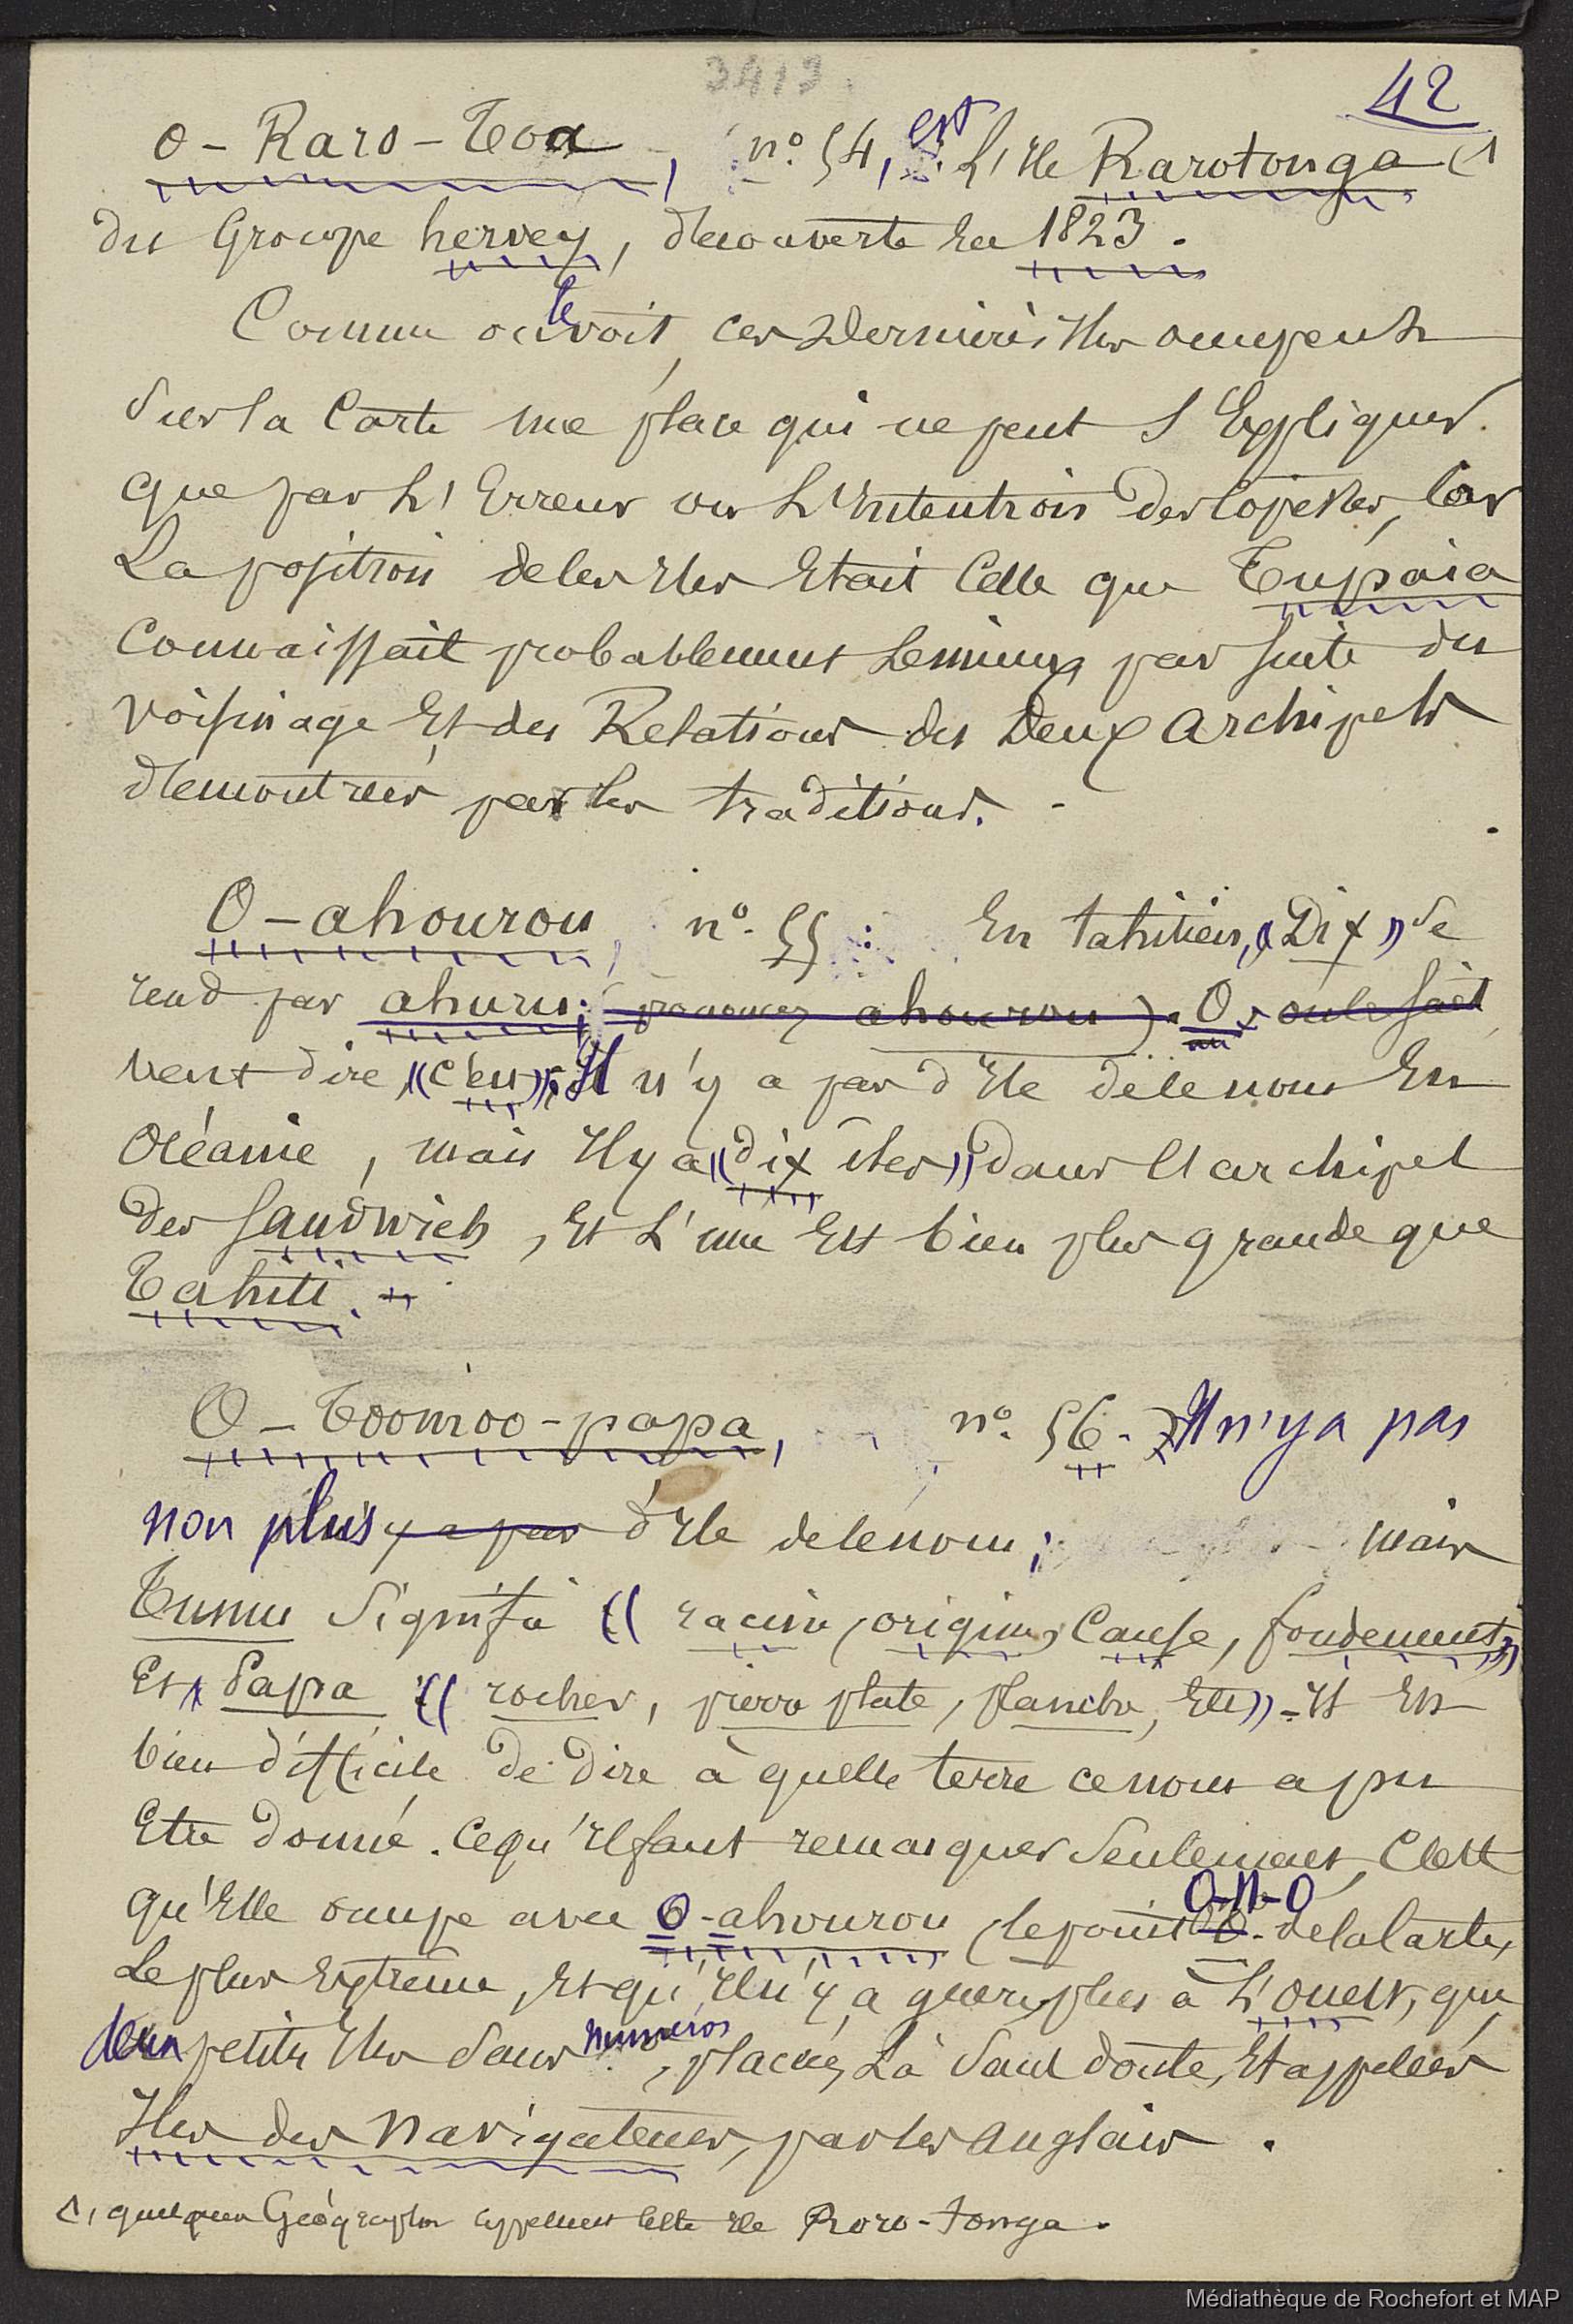 3419.
42
O-Raro-Toa, n° 54, est L'Ile Rarotonga (1
du Groupe hervey, découverte en 1823.
Comme on le voit, ces Dernières Iles occupent
sur la Carte une place qui ne peut s'Expliquer
que par L'Erreur ou L'Intention des Copistes, Car
La position de ces Iles Etait Celle que Tupaia
Connaissait probablement Le mieux par suite du
voisinage Et des Relations des Deux archipels
démontrées par les traditions.
O-ahourou, n° 55 : En tahitien, « Dix » se
rend par ahuru; (prononcez ahourou). O, on le sait
veut dire « c'est »; Il n'y a pas d'Ile de ce nom En
Océanie, mais Il y a « dix îles » dans l'archipel
des Sandwich, Et L'une Est bien plus grande que
Tahiti.
O-Toomoo-papa, n° 56. Il n'y a pas
non plus y a pas d'Ile de ce nom; mais
Tumu Signifie « racine, origine, Cause, fondement »
Et Papa « rocher, pierre plate, planche, Etc » - Il Est
bien difficile de Dire à quelle terre ce nom a pu
Etre Donné. Ce qu'Il faut remarquer Seulement, C'est
qu'Elle occupe avec O-ahourou (le point O-N-O O. de la Carte,
Le plus Extrême, Et qu'Il n'y a guère plus à L'ouest, que
deux petites Iles Sans numéros, placées Là Sans doute, Et appelées
Iles des Navigateurs, par les anglais.
(1, quelques Géographes appellent Cette Ile Roro-tonga.
Médiathèque de Rochefort et MAP